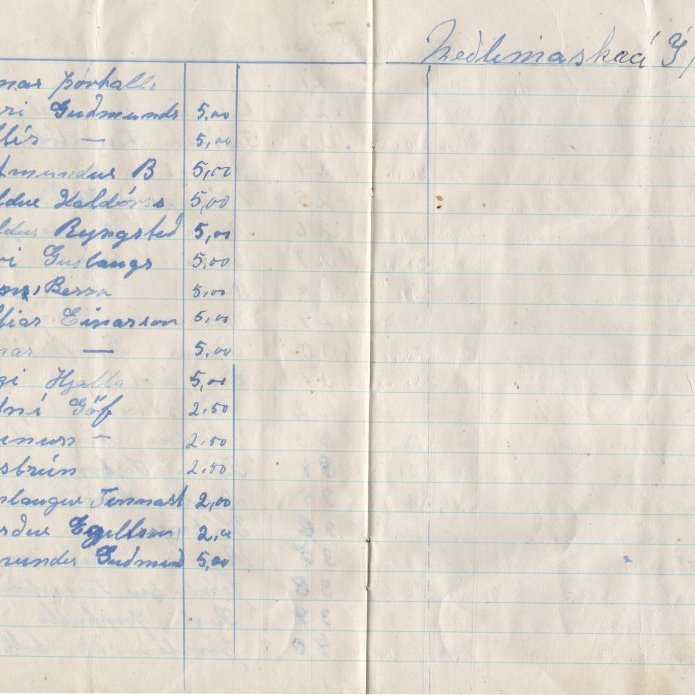 nar Þórhalls
ri Guðmunds 5,00
llís — 5,00
tmundur B 5,00
ldur Haldórss 5,00
ldur Ryngsted 5,00
vi Guðlaugs 5,00
on, Bessa 5,00
bías Einarsson 6,00
nar — 5,00
gi Hjalta 5,00
dní Göf 2,50
inum - 2,50
sbrún 2,50
nlaugur Tennart 2,00
rður Egilsson 2,00
mundur Guðmund 5,00
Meðlimaskrá Í